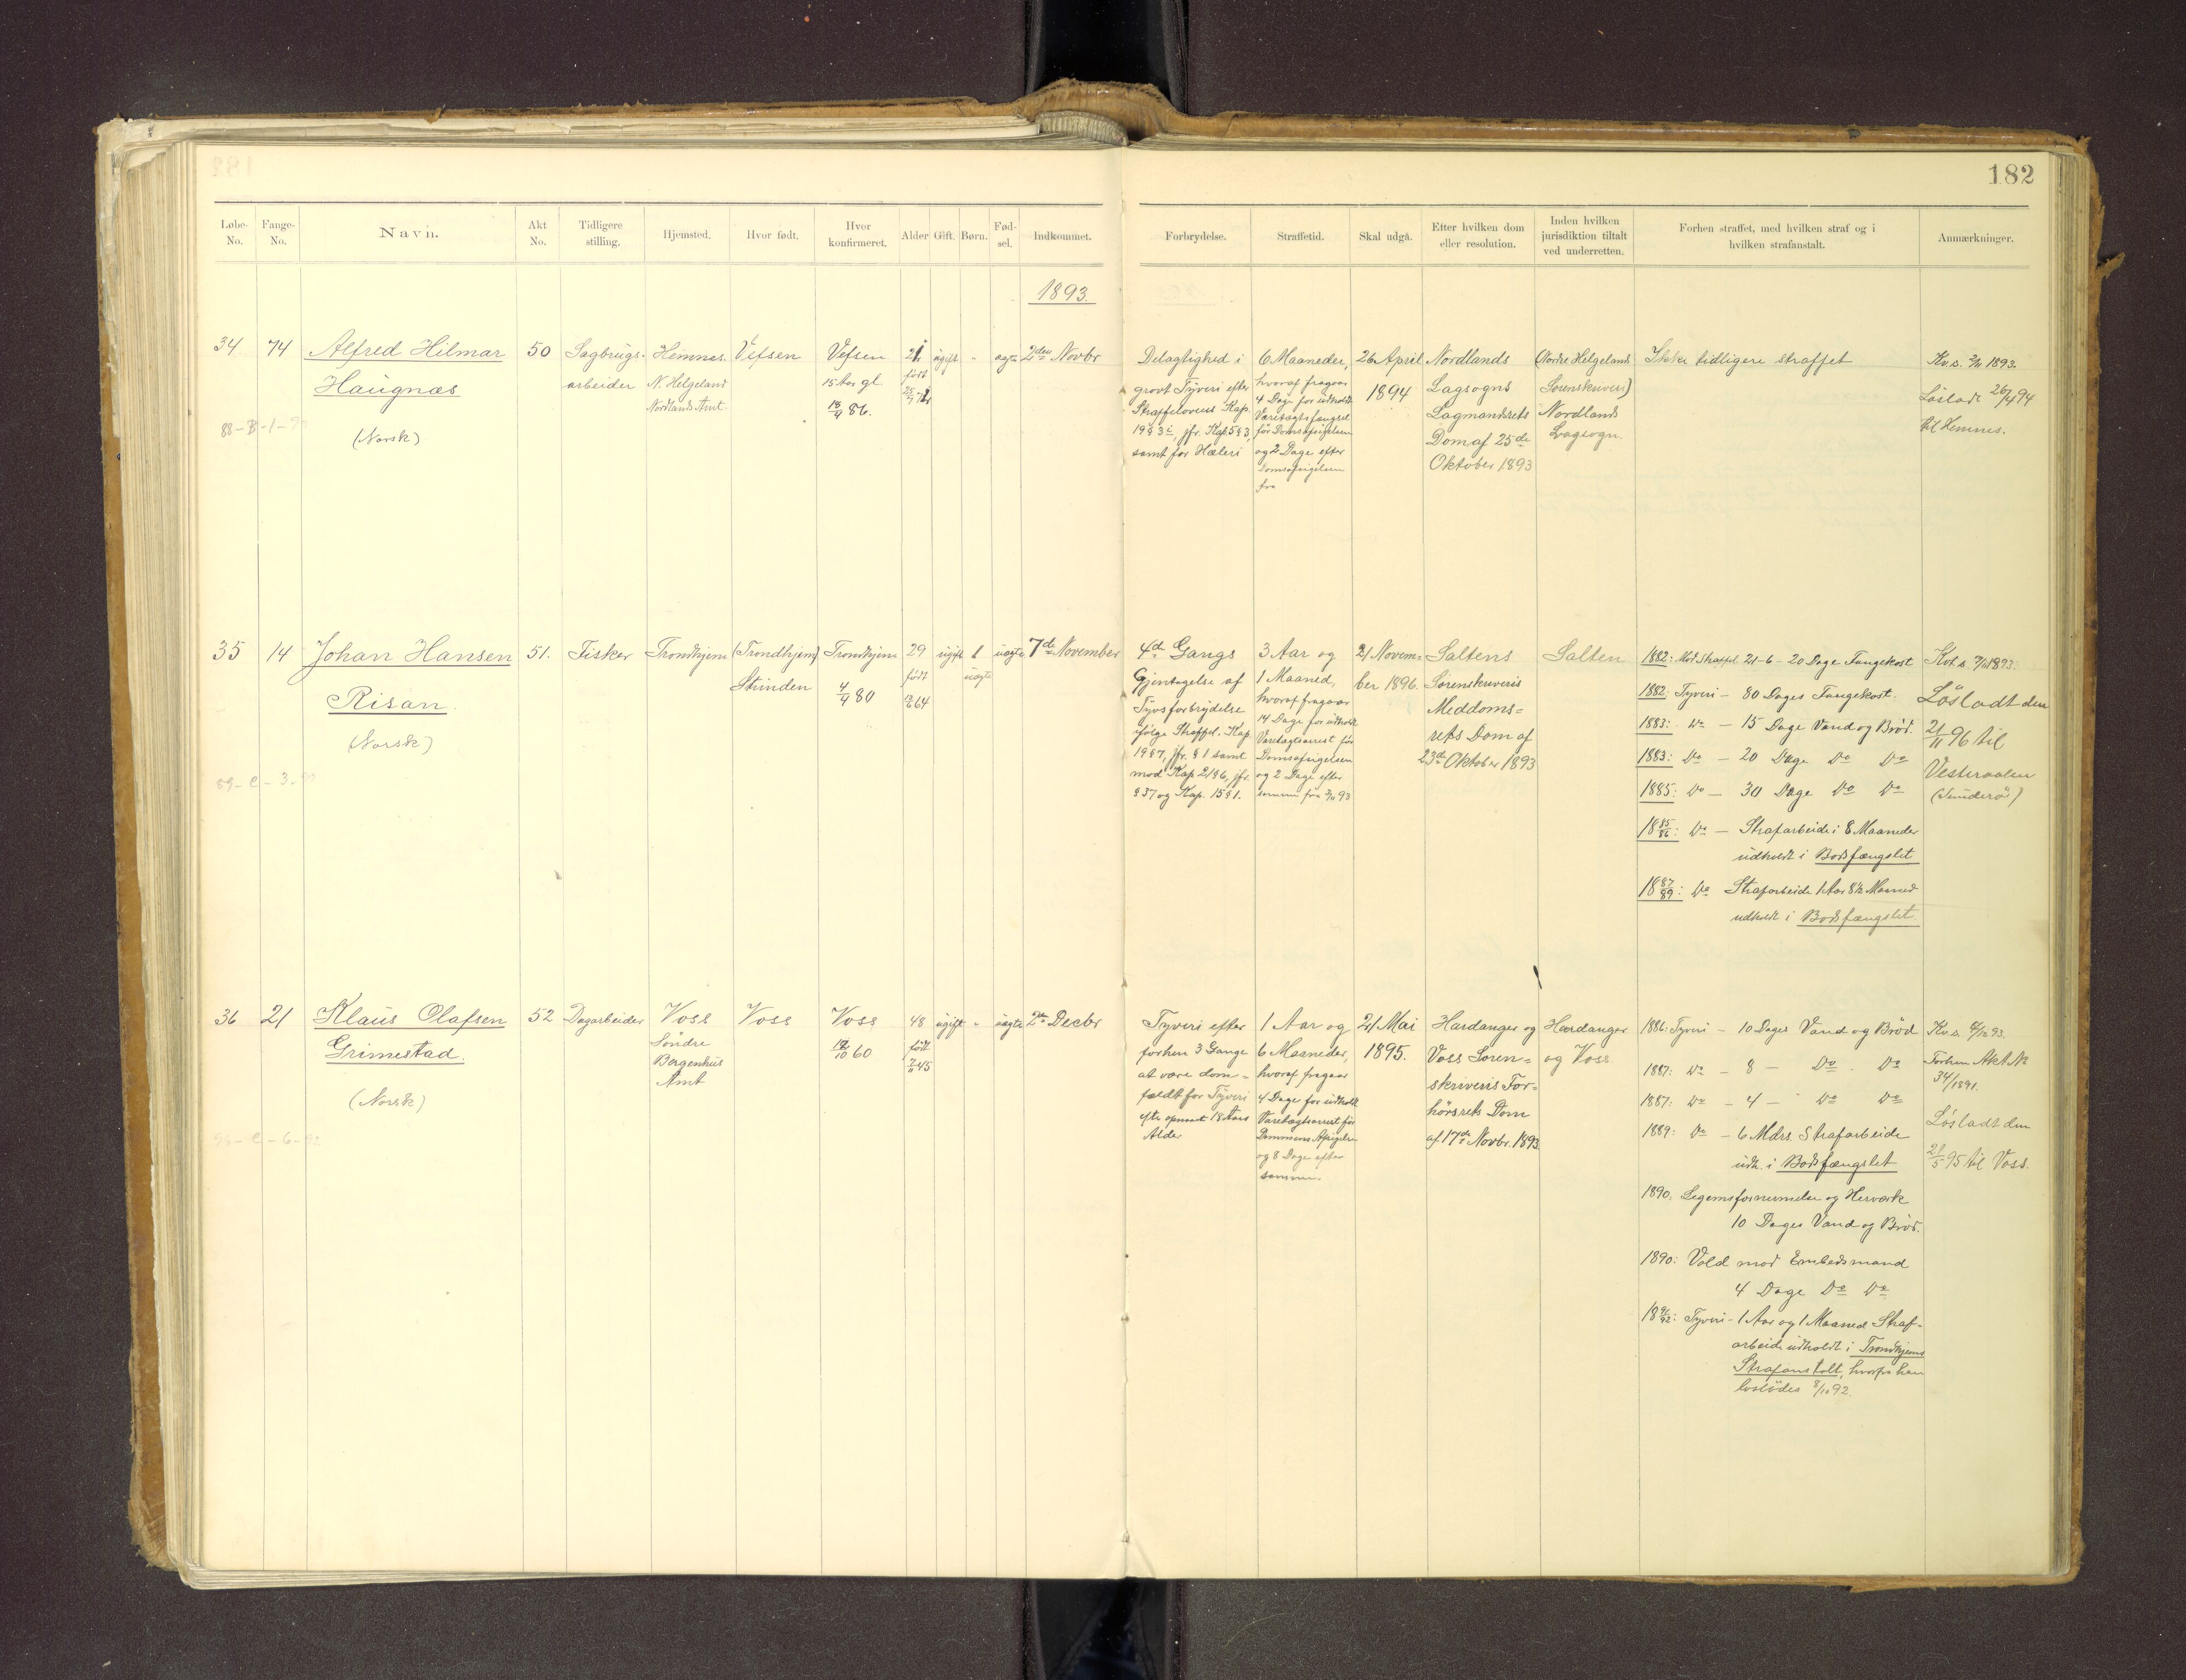 182
Løbe-No.
Fange-No.
Navn.
Akt No.
Tidligere stilling.
Hjemsted.
Hvor født.
Hvor konfirmeret.
Alder
Gift.
Børn.
Fød-sel.
Indkommet.
Forbrydelse.
Straffetid.
Skal udgå.
Efter hvilken dom eller resolution.
Inden hvilken jurisdiktion tiltalt ved underretten.
Forhen straffet, med hvilken straf og i hvilken strafanstalt.
Anmærkninger.
1893.
34
74
Alfred Hilmar
Haugnæs
(Norsk)
50
Sagbrugs-
arbeider
Hemnes.
N. Helgeland
Nordlands Amt.
Vefsen
Vefsen
15 Aar gl
18/9 86.
født
ugift
"
ægte
2den Novbr
Delagtighed i
grovt Tyveri efter
Straffelovens Kap.
19 § 3 i, jfr. Kap. 5 § 3,
samt for Hæleri
6 Maaneder,
hvoraf fragaar
4 Dage for udholdt
Varetægtsfængsel
før Domsafsigelsen
og 2 Dage efter
Domsafsigelsen
fra
26 April
1894
Nordlands
Lagsogns
Lagmandsrets
Dom af 25de
Oktober 1893
(Nordre Helgelands
Sorenskriveri)
Nordlands
Lagsogn.
Ikke tidligere straffet
Kv.s. 2/11 1893.
Løsladt 26/4 94
til Hemnes.
35
14
Johan Hansen
Risan.
(Norsk)
89-C-3-
51.
Fisker
Trondhjem
(Trondhjem)
Strinden
Trondhjem
4/4 80
29
født
64
ugift
1
uægte
uægte
7de November
4de Gangs
Gjentagelse af
Tyvsforbrydelse
ifølge Straffel. Kap
19 § 7, jfr. § 1 samt
mod Kap 21 § 6, jfr.
§ 37 og Kap. 15 § 1.
3 Aar og
1 Maaned,
hvoraf fragaar
14 Dage for udholdt
Varetægtsarrest før
Domsafsigelsen
og 2 Dage efter
samme fra 93
21 Novem-
ber 1896.
Saltens
Sorenskriveris
Meddoms=
rets Dom af
23de Oktober 1893
Salten
1882: Mod Straffel. 21-6 - 20 Dage Fangekost
1882: Tyveri - 80 Dages Fangekost.
1883: Do - 15 Dage Vand og Brød.
1883: Do - 20 Dage Do Do
1885: Do - 30 Dage Do Do
1885/86: Do - Strafarbeide i 8 Maaneder
udholdt i Bodsfængslet
1887/89: Do Strafarbeide 1 Aar 8½ Maaned
udholdt i Bodsfængslet
Kvt. s. 7/11 1893.
Løsladt den
21/11 96 til
Vesteraalen
36
21
Klaus Olafsen
Grimestad.
(Norsk)
52
Dagarbeider
Voss
Søndre
Bergenhus
Amt
Voss
Voss
10 60
48
født
45
ugift
"
uægte
2den Decbr
Tyveri efter
forhen 3 Gange
at være dom=
fældt for Tyveri
efter opnaaet 18 Aars
Alder
1 Aar og
6 Maaneder,
hvoraf fragaar
4 Dage for udholdt
Varetægtsarrest før
Dommens Afsigelse
og 8 Dage efter
samme.
21 Mai
1895.
Hardanger og
Voss Soren=
skriveris For=
hørsrets Dom
af 17de Novbr. 1893
Hardanger
og Voss
1886: Tyveri - 10 Dages Vand og Brød
1887: Do - 8 - Do Do
1887: Do - 4 - Do Do
1889: Do - 6 Mdrs. Strafarbeide
udh. i Bodsfængslet
1890: Legemsfornærmelse og Hærværk
10 Dages Vand og Brød.
1890: Vold mod Embedsmand
4 Dage Do Do
1891/92: Tyveri - 1 Aar og 1 Maaned Straf-
arbeide udholdt i Trondhjems
Strafanstalt, hvorfra han
løslodes 8/10 92.
Kv.s. 93.
Forhen Akt No
34/1891.
Løsladt den
21/5 95 til Voss.